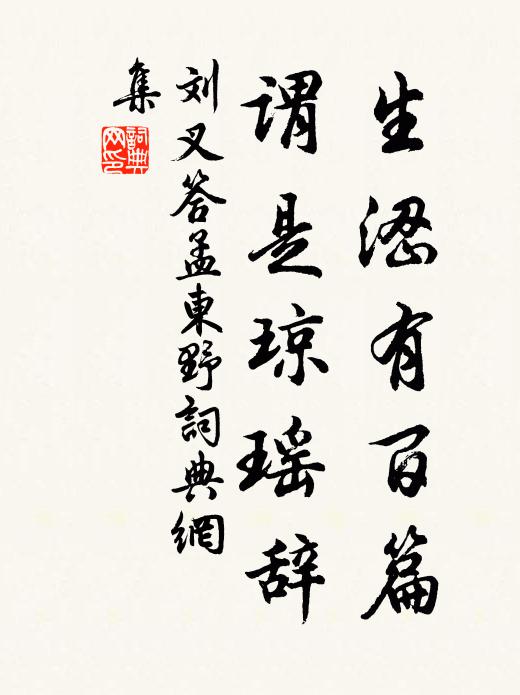 生涩有百篇
谓是琼瑶辞
刘叉答孟東野詞典網
集
詞典网印